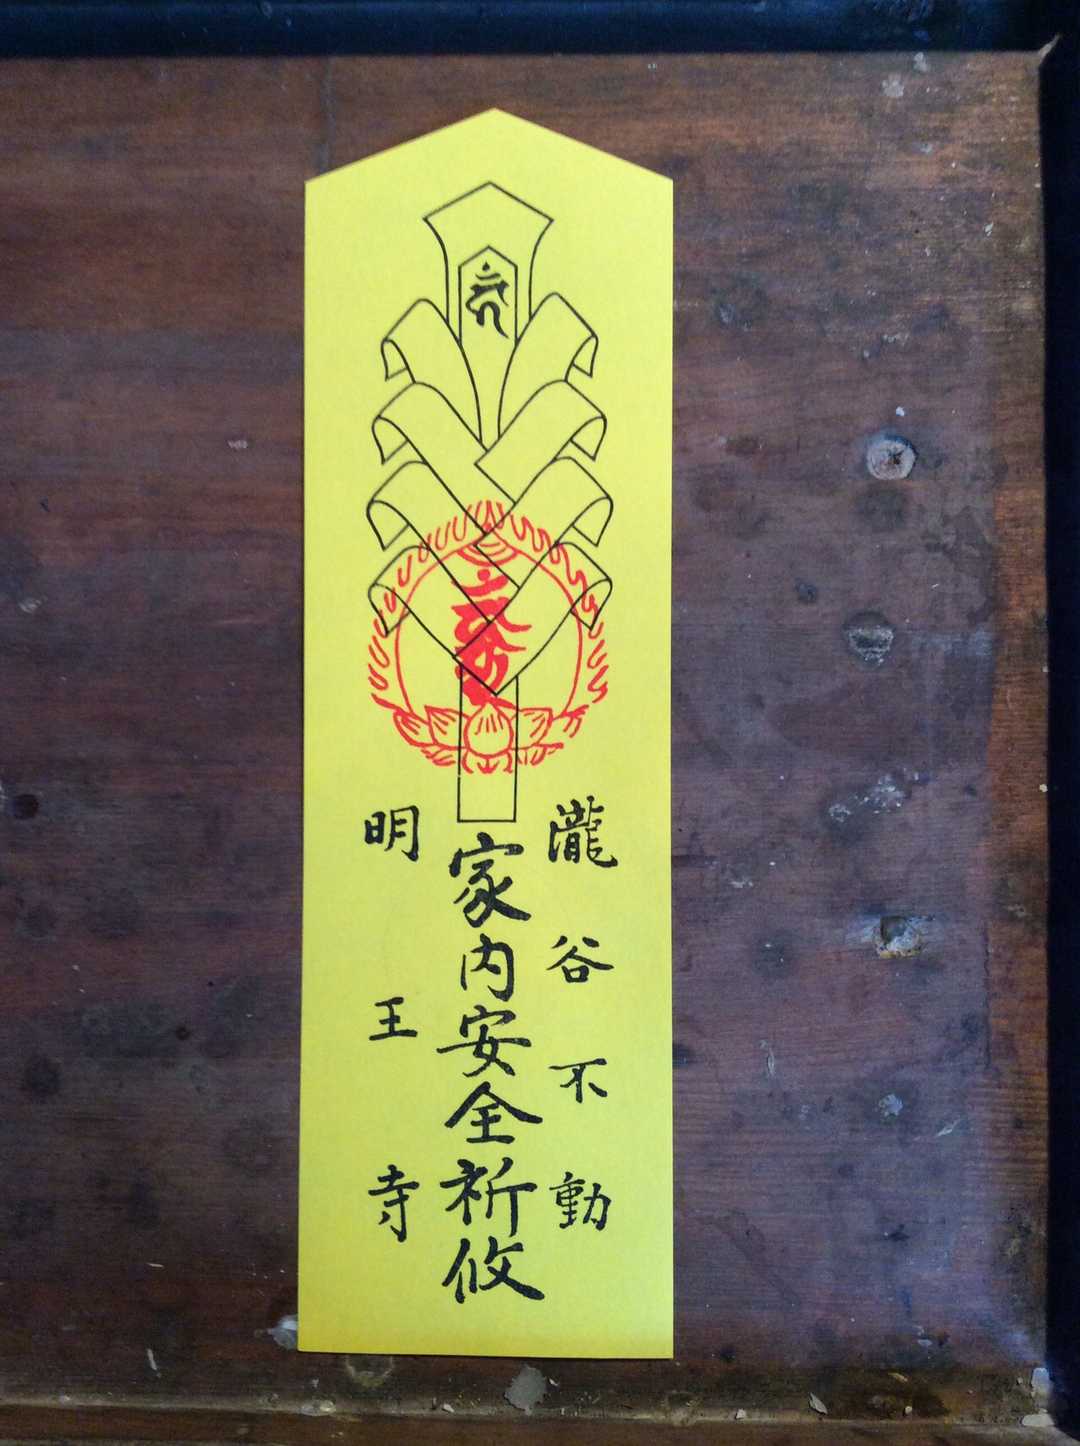 瀧谷不動
家内安全祈攸
明王寺